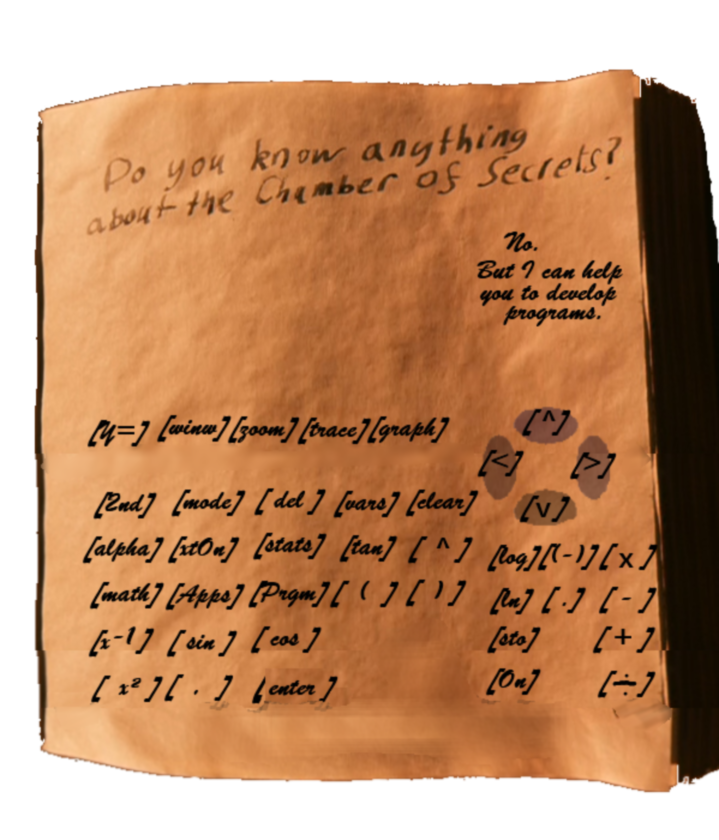 Do you know anything
about the Chamber of Secrets?
No.
But I can help
you to develop
programs.
[Y=] [winw] [zoom] [trace] [graph]
[^]
[<] [>]
[2nd] [mode] [del] [vars] [clear]
[v]
[alpha] [xtOn] [stats] [tan] [^] [log] [(-)] [x]
[math] [Apps] [Prgm] [(] [)] [ln] [.] [-]
[x-1] [sin] [cos] [sto] [+]
[x²] [.] [enter] [On] [÷]